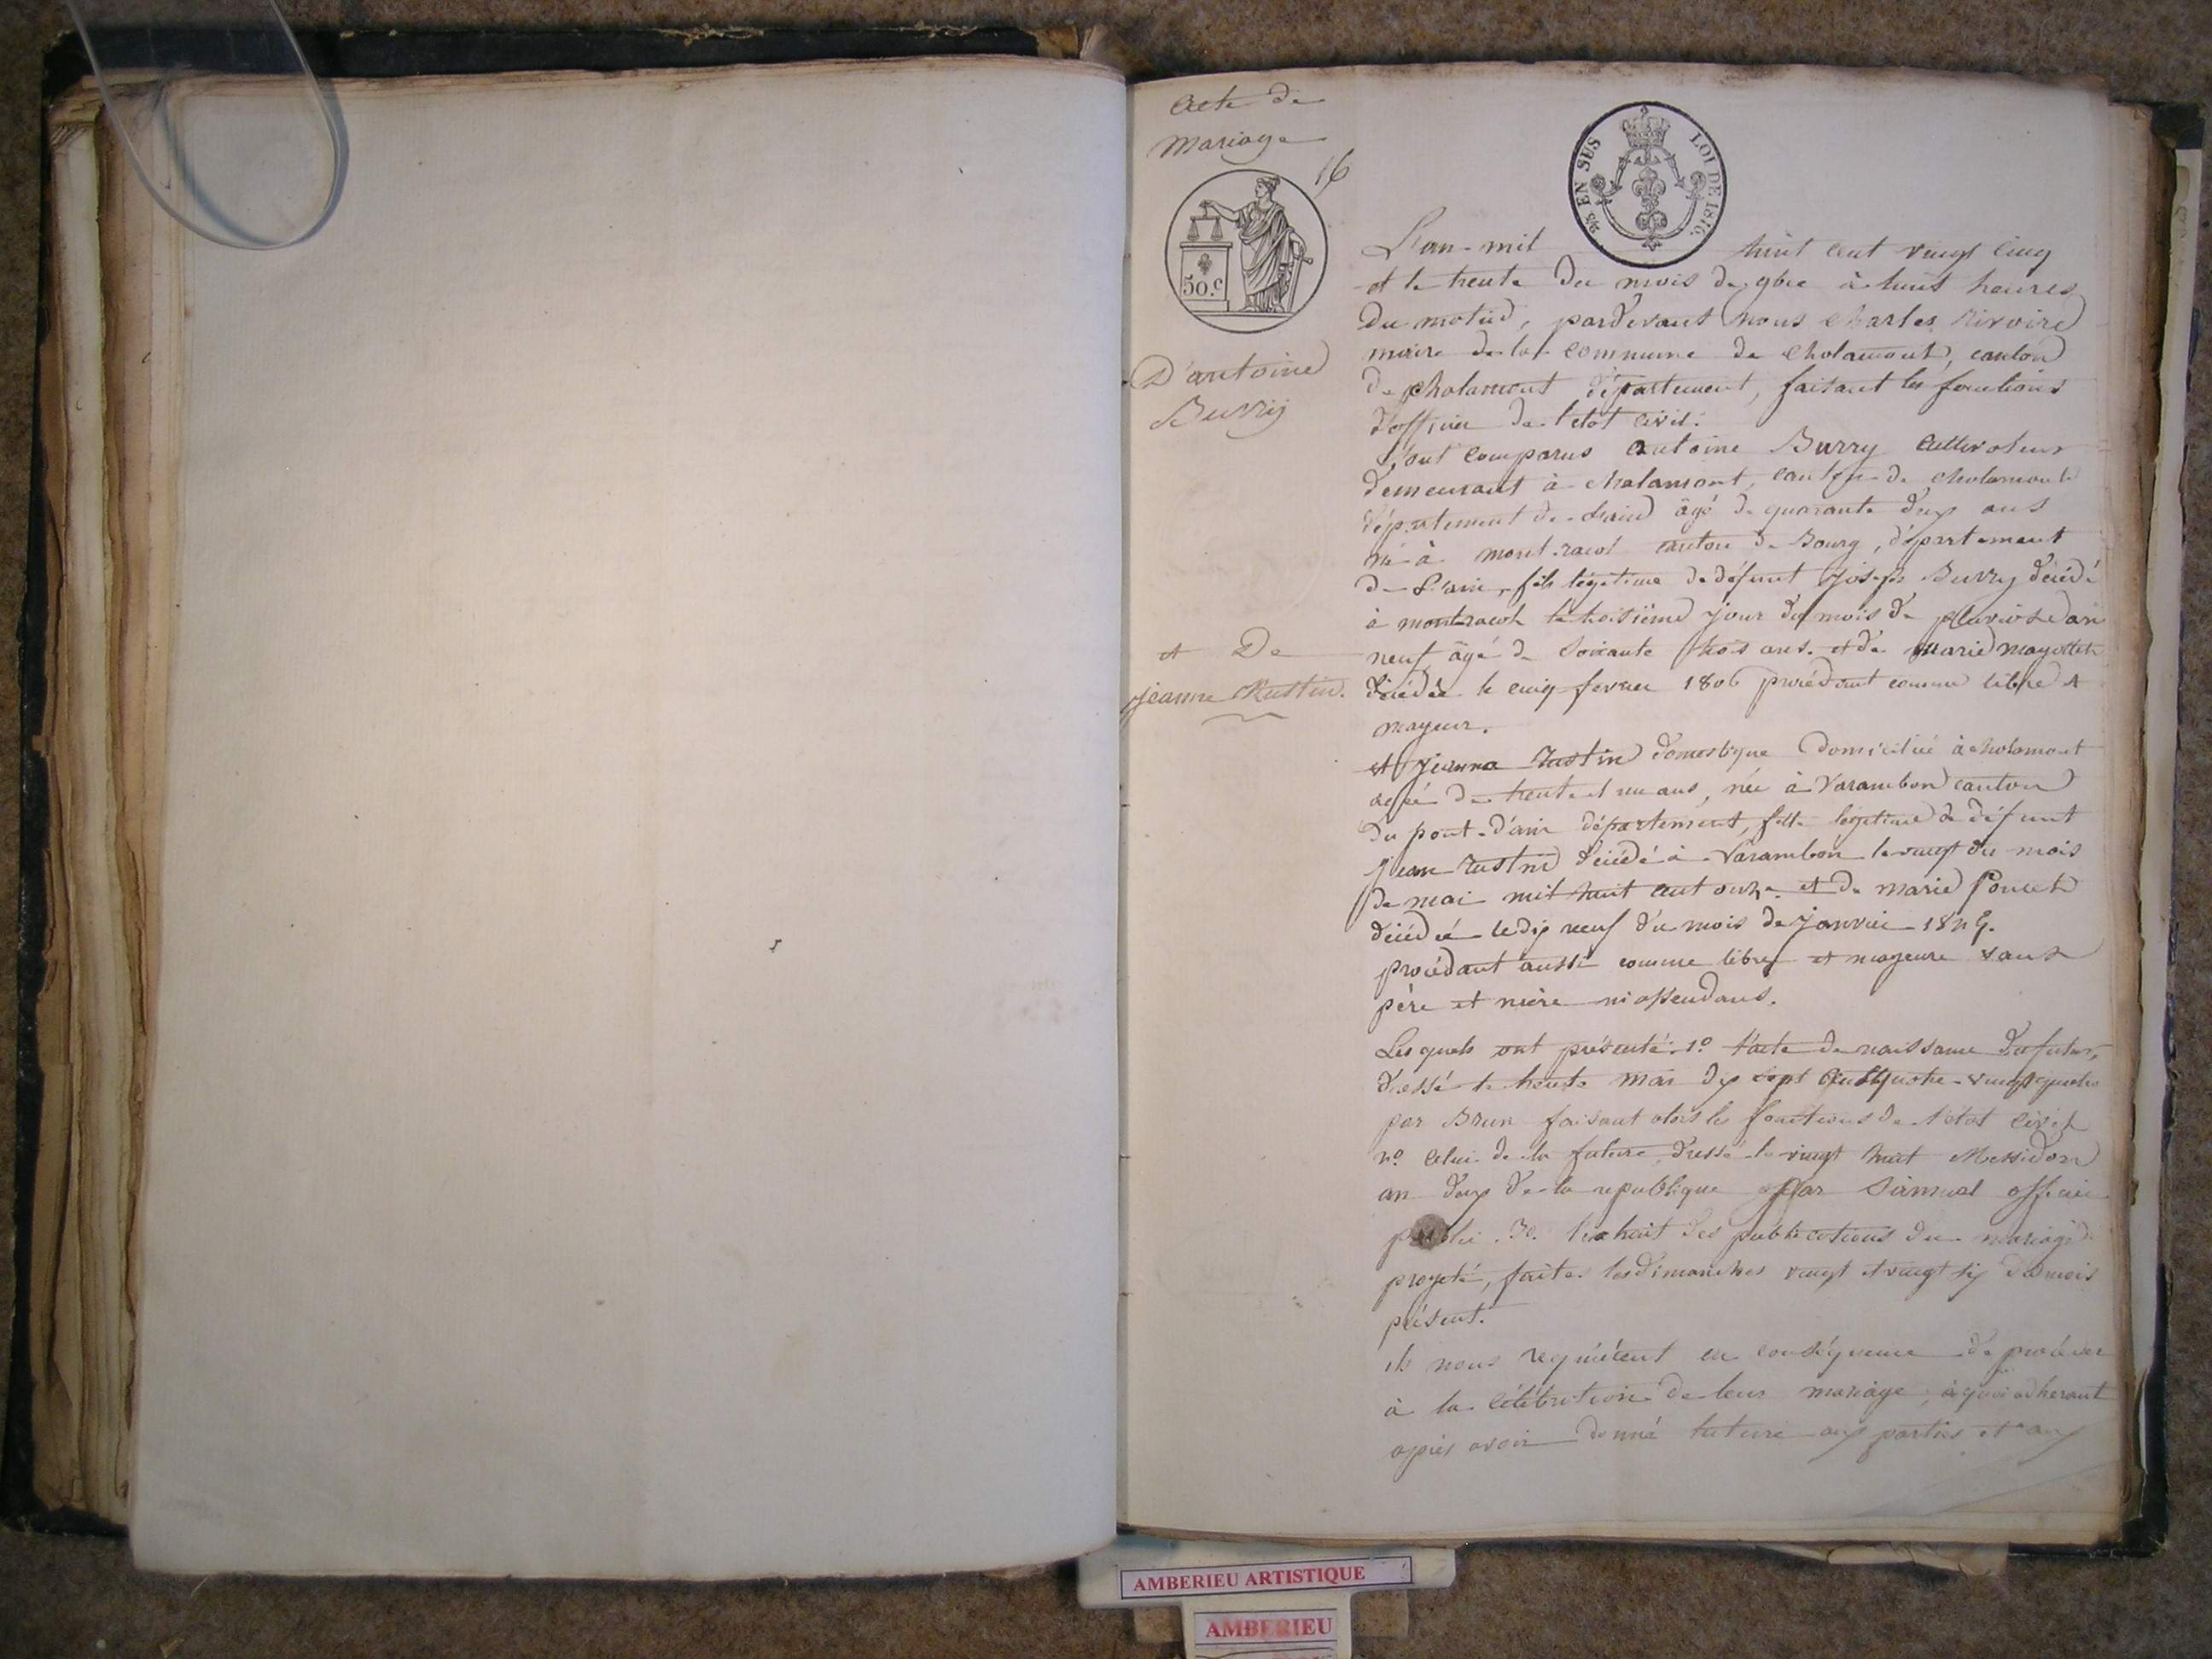 acte de
mariage
16
50.c
EN SUS
LOI DE 1816.
D'antoine
Burry
et De
jeanne Rustin.
L'an mil huit cent vingt cinq
et le trente du mois de 9bre à huit heures
du matin, pardevant nous Charles Rivoire
maire de la commune de Chalamont, canton
de Chalamont département, faisant les fonctions
d'officier de l'etat civil.
Sont comparus antoine Burry cultivateur
demeurant à chalamont, canton de chalamont
département de Lain âgé de quarante deux ans
né à mont-racol canton de Bourg, département
de L'ain, fils légitime de défunt joseph Burry décédé
à montracol le troisième jour du mois de pluviose an
neuf, âgé de soixante trois ans. et de marie
décédée le cinq fevrier 1806 procédant comme libre et
mayeur.
et jeanne Rustin domestique domiciliée à chalamont
agée de trente et un ans, née à Varambon canton
du pont-d'ain département, fille légitime de défunt
jean Rustin décédé à Varambon le vingt du mois
de mai mil huit cent onze et de marie Poncet
décédée le dix neuf du mois de janvier
procédant aussi comme libre et mayeure sans
père et mère ni assendans.
Les quels ont présenté 1o l'acte de naissance du futur,
dressé le trente mai dix sept cent quatre-vingt quatre
par Brun faisant alors les fonctions de l'état civil
2o celui de la future, dressé le vingt huit Messidor
an deux de la republique par officier
public. 3o. l'extrait des publications du mariage
projeté, faites les dimanches vingt et vingt six du mois
présent.
ils nous requièrent en conséquence de procéder
à la célébration de leur mariage, à quoi adhérant
après avoir donné lecture aux parties et aux
AMBERIEU ARTISTIQUE
AMBERIEU